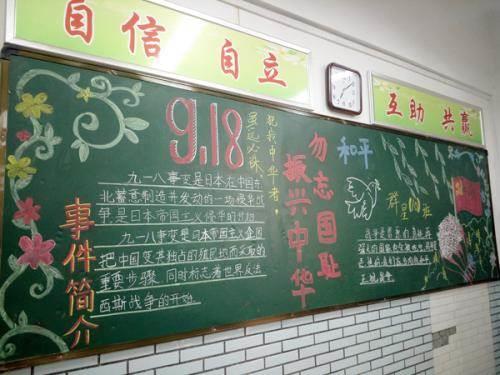 自信 自立
互助 共赢
9.18
犯我中华者，
虽远必诛
事件简介
九一八事变是日本在中国东
北蓄意制造并发动的一场侵华战
争是日本帝国主义侵华的开端
九一八事变是日本帝国主义企图
把中国变其独占的殖民地而采取的
重要步骤，同时标志着世界反法
西斯战争的开始
勿忘国耻
振兴中华
和平
群星的班